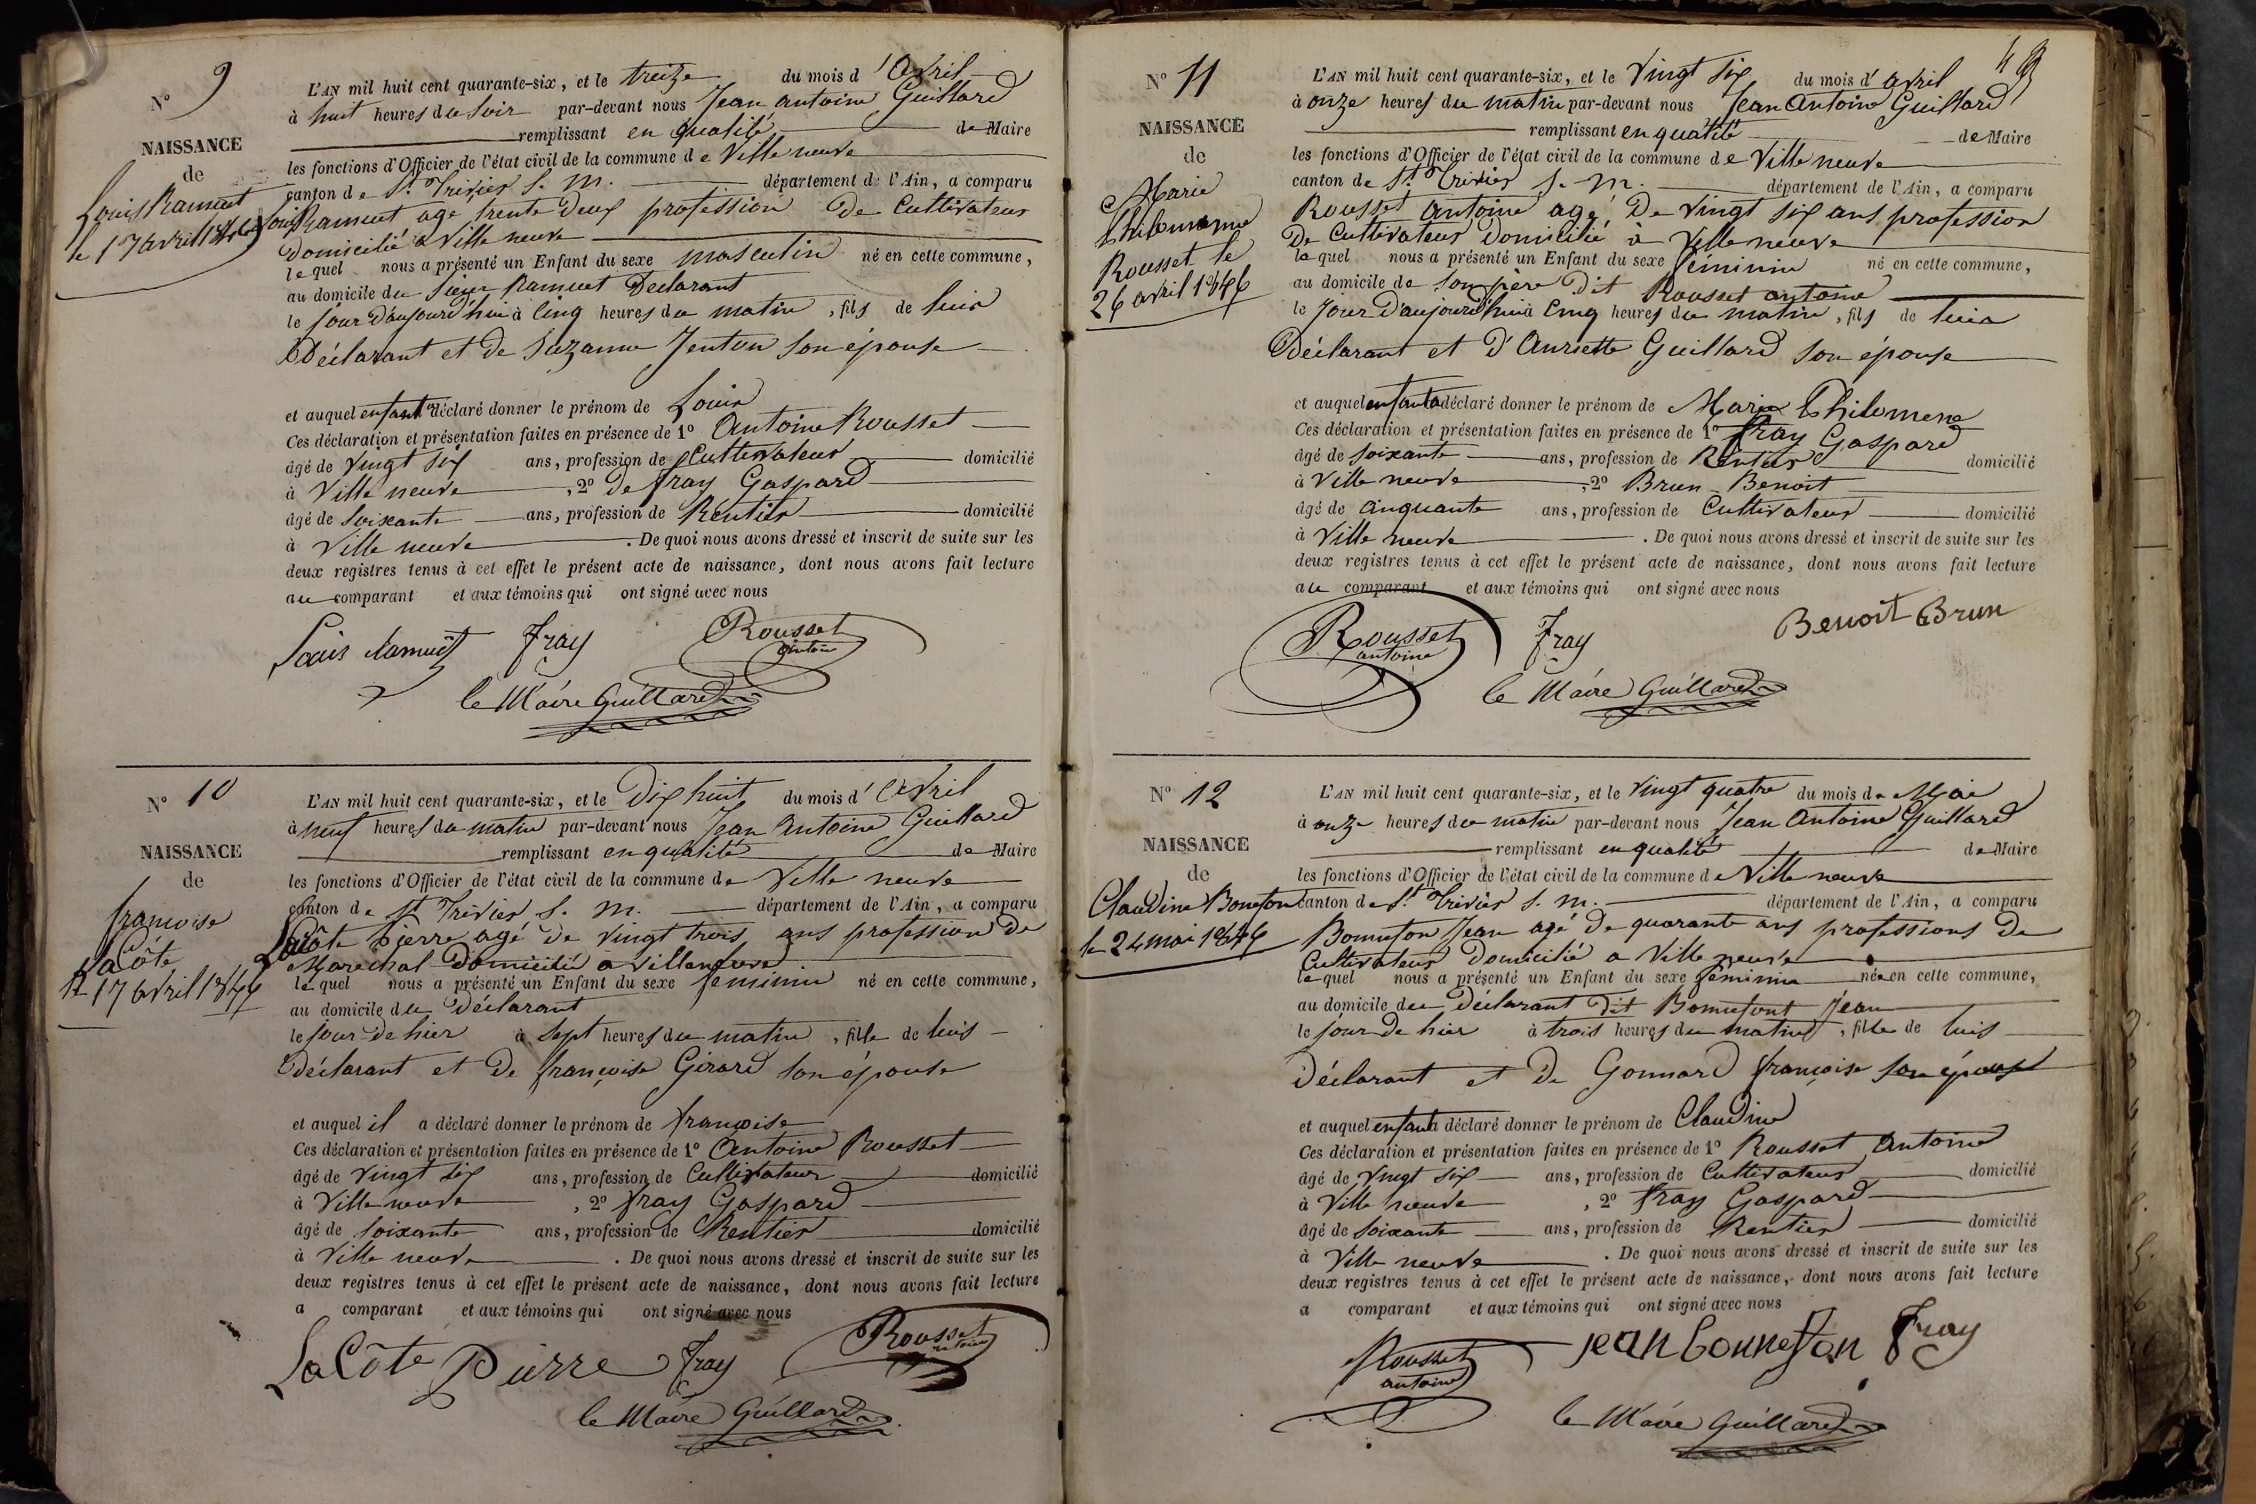 N° 9
NAISSANCE
de
Louis Ramuet
le 17 avril 1846
L'AN mil huit cent quarante-six, et le treize du mois d'Avril
à huit heures du soir par-devant nous Jean antoine Guillard
remplissant en qualité de Maire
les fonctions d'Officier de l'état civil de la commune de Ville neuve
canton de St. Trivier S. M. département de l'Ain, a comparu
Louis Ramuet agé trente deux profession de Cultivateur
Domicilié a Ville neuve
lequel nous a présenté un Enfant du sexe masculin né en cette commune,
au domicile du Sieur Ramuet Declarant
le jour D'aujourd'hui à Cinq heures du matin, fils de luis
Déclarant et de Suzanne Jenton son épouse
et auquel enfant a déclaré donner le prénom de Louis
Ces déclaration et présentation faites en présence de 1° Antoine Rousset
âgé de Vingt six ans, profession de Cultivateur domicilié
à Ville neuve, 2° de fray Gaspard
âgé de Soixante ans, profession de Rentier domicilié
à Ville neuve. De quoi nous avons dressé et inscrit de suite sur les
deux registres tenus à cet effet le présent acte de naissance, dont nous avons fait lecture
au comparant et aux témoins qui ont signé avec nous
Louis Ramuet fray Rousset
antoine
le Maire Guillard
N° 10
NAISSANCE
de
françoise
LaCôte
le 17 avril 1846
L'AN mil huit cent quarante-six, et le Dix huit du mois d'Avril
à neuf heures du matin par-devant nous Jean Antoine Guillard
remplissant en qualité de Maire
les fonctions d'Officier de l'état civil de la commune de Ville neuve
canton de St Trivier S. M. département de l'Ain, a comparu
Lacôte pierre agé de Vingt trois ans profession de
Marechal Domicilié a Villeneuve
lequel nous a présenté un Enfant du sexe feminin né en cette commune,
au domicile du Déclarant
le jour de hier à Sept heures du matin, fille de luis
Déclarant et de françoise Girard son épouse
et auquel il a déclaré donner le prénom de françoise
Ces déclaration et présentation faites en présence de 1° Antoine Rousset
âgé de Vingt six ans, profession de Cultivateur domicilié
à Ville neuve, 2° fray Gaspard
âgé de soixante ans, profession de Rentier domicilié
à Ville neuve. De quoi nous avons dressé et inscrit de suite sur les
deux registres tenus à cet effet le présent acte de naissance, dont nous avons fait lecture
a comparant et aux témoins qui ont signé avec nous
LaCôte Pierre fray Rousset
antoine
le Maire Guillard
N° 11
NAISSANCE
de
Marie
Rousset le
26 avril 1846
L'AN mil huit cent quarante-six, et le Vingt six du mois d'avril
à onze heures du matin par-devant nous Jean Antoine Guillard
remplissant en qualité de Maire
les fonctions d'Officier de l'état civil de la commune de Ville neuve
canton de St. Trivier S. M. département de l'Ain, a comparu
Rousset Antoine agé, De Vingt six ans profession
De Cultivateur Domicilié à Ville neuve
lequel nous a présenté un Enfant du sexe féminin né en cette commune,
au domicile de son père Dit Rousset antoine
le Jour D'aujourd'hui à Cinq heures du matin, fils de luis
Déclarant et D'Anriette Guillard son épouse
et auquel enfant a déclaré donner le prénom de Marie Philomene
Ces déclaration et présentation faites en présence de 1° fray Gaspard
âgé de soixante ans, profession de Rentier domicilié
à Ville neuve, 2° Brun Benoit
âgé de cinquante ans, profession de Cultivateur domicilié
à Ville neuve. De quoi nous avons dressé et inscrit de suite sur les
deux registres tenus à cet effet le présent acte de naissance, dont nous avons fait lecture
au comparant et aux témoins qui ont signé avec nous
Rousset fray Benoit Brun
antoine
le Maire Guillard
N° 12
NAISSANCE
de
Claudine Bonnefon
le 24 mai 1846
L'AN mil huit cent quarante-six, et le Vingt quatre du mois de Mai
à onze heures du matin par-devant nous Jean Antoine Guillard
remplissant en qualité de Maire
les fonctions d'Officier de l'état civil de la commune de Ville neuve
canton de St. Trivier S. M. département de l'Ain, a comparu
Bonnefon Jean agé de quarante ans professions de
Cultivateur Domicilié a Ville neuve
lequel nous a présenté un Enfant du sexe féminin née en cette commune,
au domicile du Déclarant dit Bonnefont Jean
le jour de hier à trois heures du matin, fille de luis
Déclarant et de Gonnard françoise son épouse
et auquel enfant a déclaré donner le prénom de Claudine
Ces déclaration et présentation faites en présence de 1° Rousset Antoine
âgé de Vingt six ans, profession de Cultivateur domicilié
à Ville neuve, 2° fray Gaspard
âgé de soixante ans, profession de Rentier domicilié
à Ville neuve. De quoi nous avons dressé et inscrit de suite sur les
deux registres tenus à cet effet le présent acte de naissance, dont nous avons fait lecture
a comparant et aux témoins qui ont signé avec nous
Rousset jean bonnefon fray
antoine
le Maire Guillard